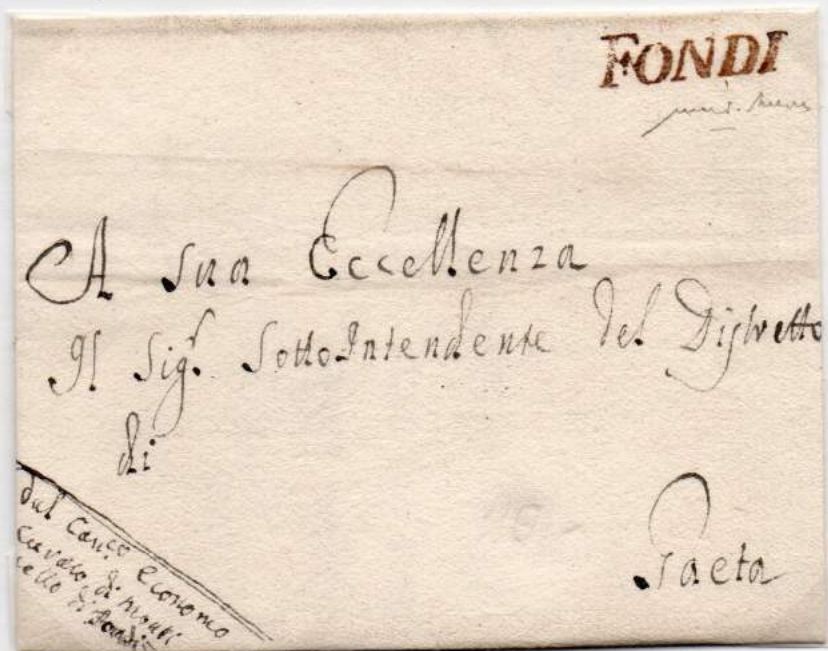 FONDI
A sua Eccellenza
Il Sigr. SottoIntendente del Distretto
di
Gaeta
dal Canco Economo
Curato di Monti
cello di Fondi